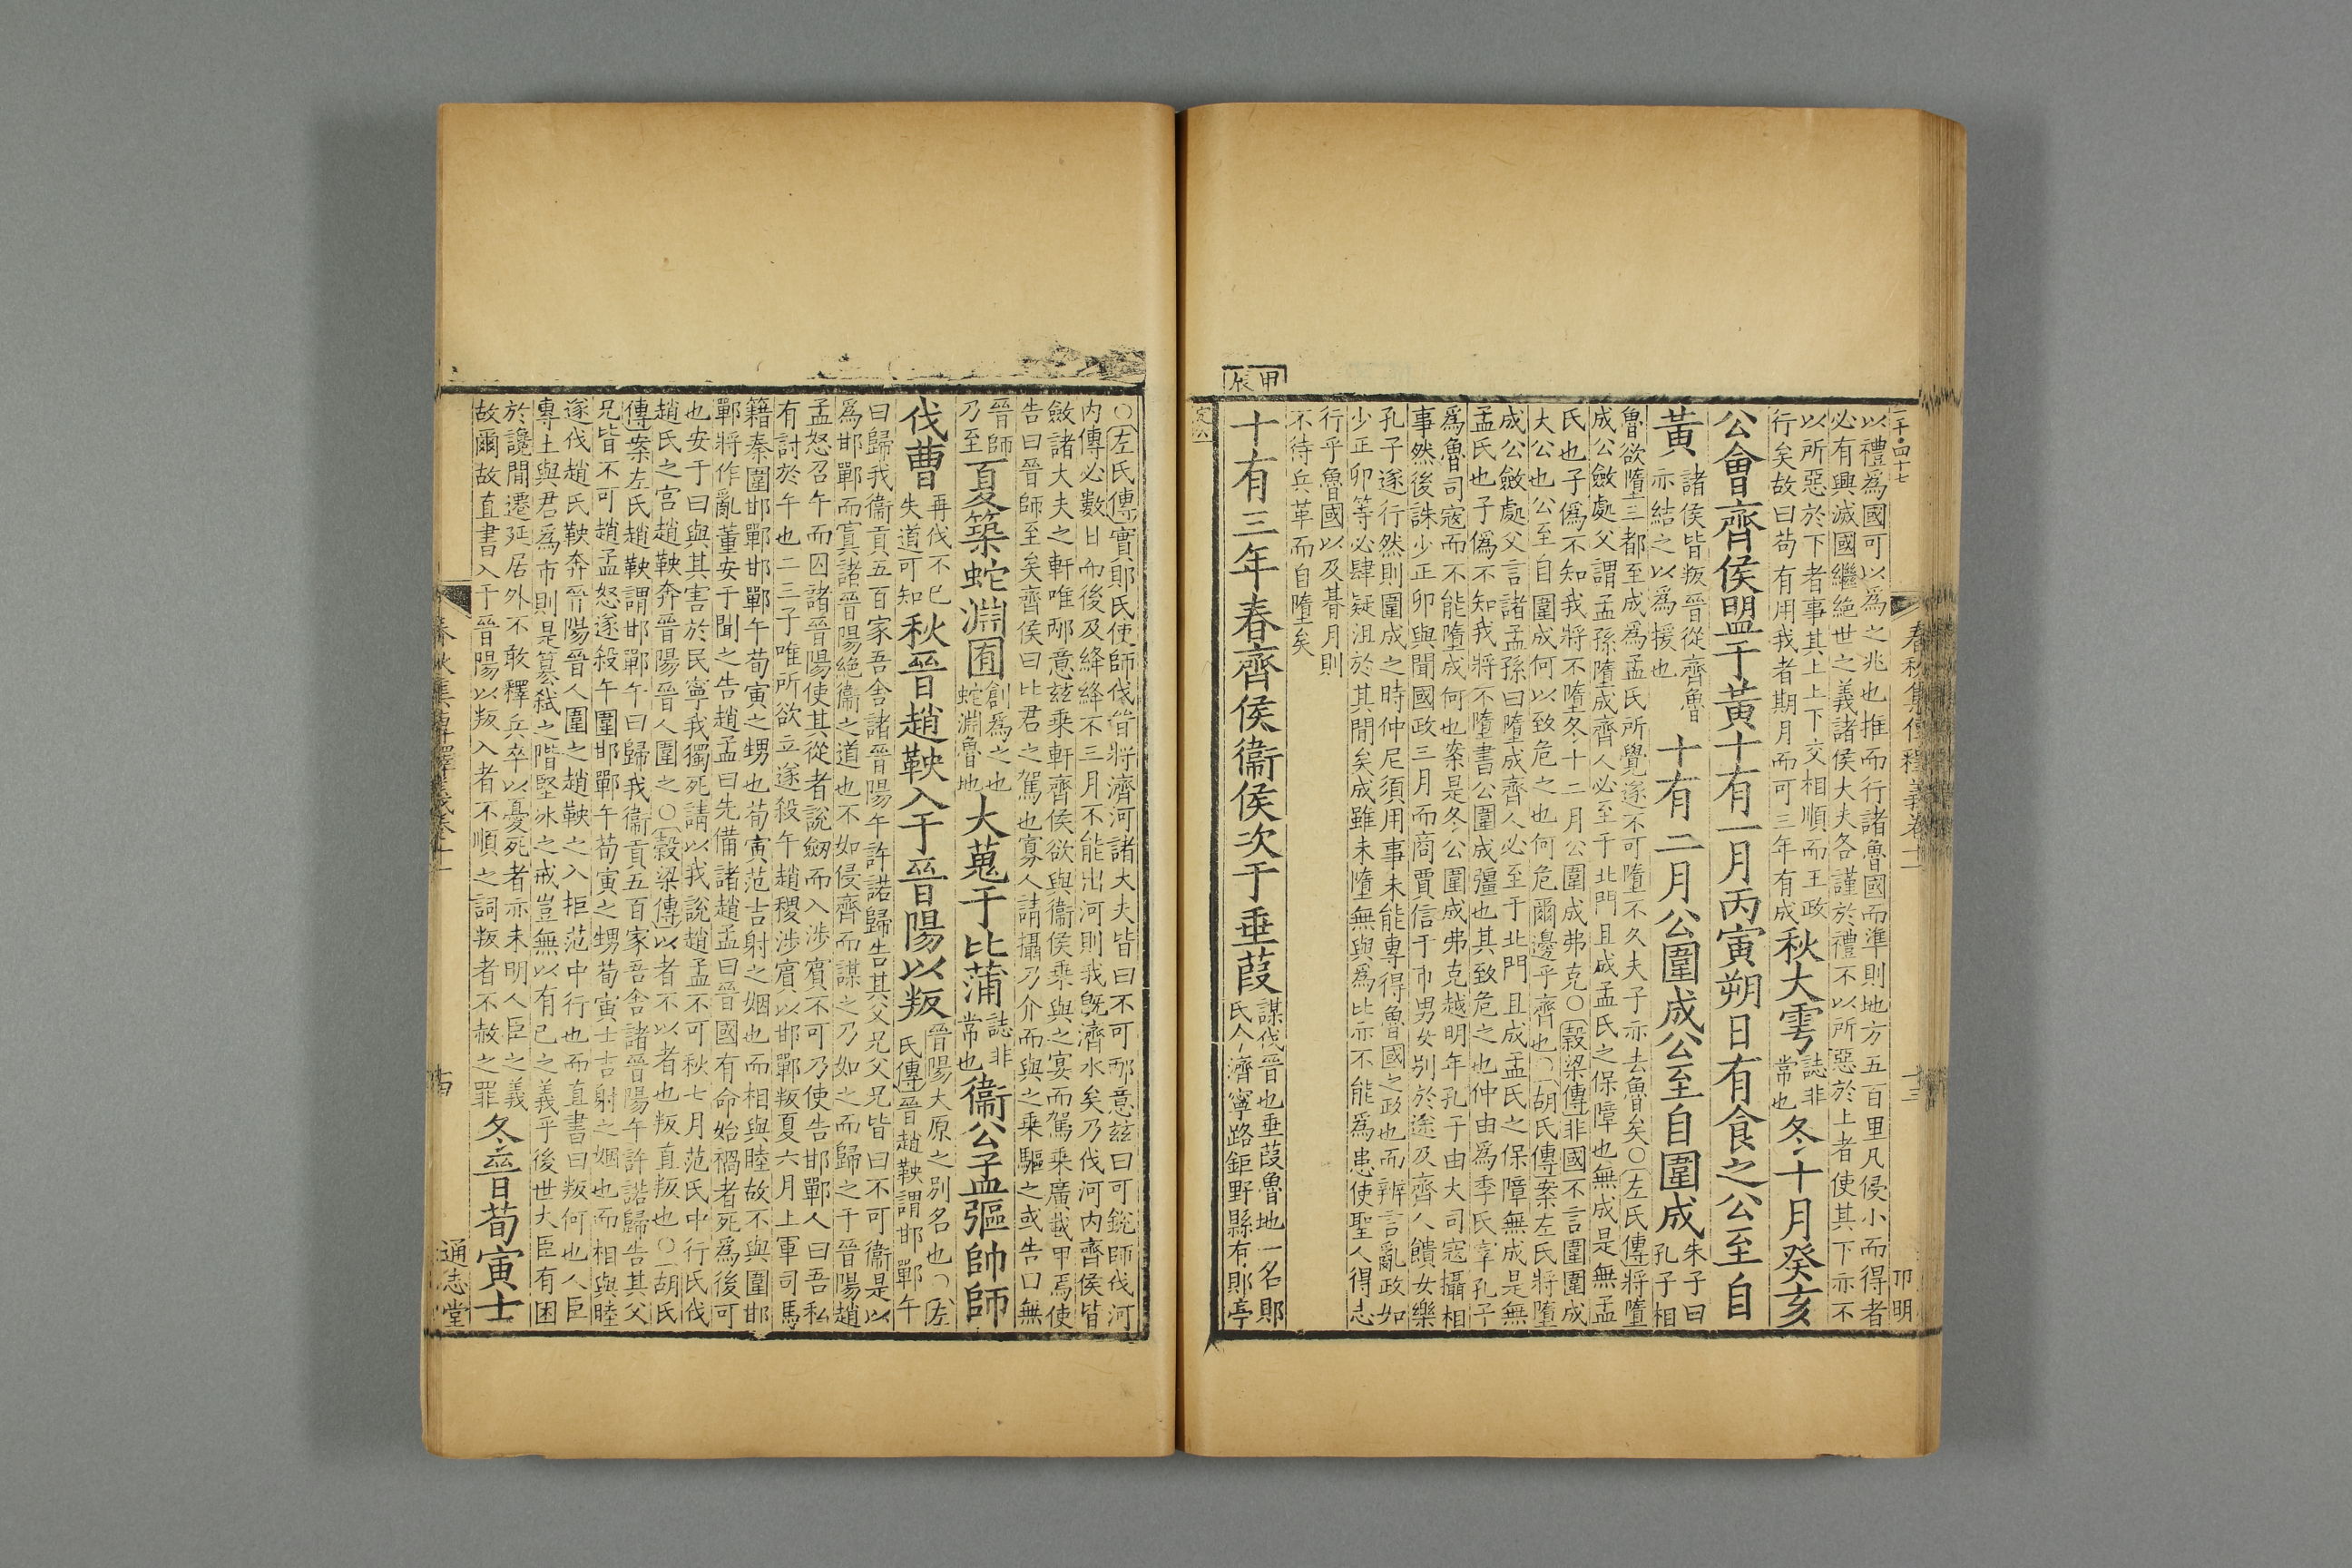 以禮爲國可以爲之兆也推而行諸魯國而準則地方五百里凡侵小而得者
必有興滅國繼絕世之義諸侯大夫各謹於禮不以所惡於上者使其下亦不
以所惡於下者事其上上下交相順而王政
行矣故曰苟有用我者期月而可三年有成
秋大雩
誌非
常也
冬十月癸亥
公會齊侯盟于黃十有一月丙寅朔日有食之公至自
黃
諸侯皆叛晉從齊魯
亦結之以爲援也
十有二月公圍成公至自圍成
朱子曰
孔子相
魯欲墮三都至成爲孟氏所覺遂不可墮不久夫子亦去魯矣○左氏傳將墮
成公斂處父謂孟孫墮成齊人必至于北門且成孟氏之保障也無成是無孟
氏也子僞不知我將不墮冬十二月公圍成弗克○穀梁傳非國不言圍圍成
大公也公至自圍成何以致危之也何危爾邊乎齊也○胡氏傳案左氏將墮
成公斂處父言諸孟孫曰墮成齊人必至于北門且成孟氏之保障無成是無
孟氏也子僞不知我將不墮書公圍成彊也其致危之也仲由爲季氏宰孔子
爲魯司寇而不能墮成何也案是冬公圍成弗克越明年孔子由大司寇攝相
事然後誅少正卯與聞國政三月而商賈信于市男女別於途及齊人饋女樂
孔子遂行然則圍成之時仲尼須用事未能專得魯國之政也而辨言亂政如
少正卯等必肆疑沮於其閒矣成雖未墮無與爲比亦不能爲患使聖人得志
行乎魯國以及朞月則
不待兵革而自墮矣
甲辰
十有三年春齊侯衞侯次于垂葭
謀伐晉也垂葭魯地一名郹
氏今濟寧路鉅野縣有郹亭
定公
春秋集傳釋義卷十一
十三
卭明
○左氏傳實郹氏使師伐晉將濟河諸大夫皆曰不可邴意玆曰可銳師伐河
内傳必數日而後及絳絳不三月不能出河則我旣濟水矣乃伐河内齊侯皆
斂諸大夫之軒唯邴意玆乘軒齊侯欲與衞侯乘與之宴而駕乘廣載甲焉使
告曰晉師至矣齊侯曰比君之駕也寡人請攝乃介而與之乘驅之或告曰無
晉師
乃至
夏築蛇淵囿
創爲之也
蛇淵魯地
大蒐于比蒲
誌非
常也
衞公孟彄帥師
伐曹
再伐不已
失道可知
秋晉趙鞅入于晉陽以叛
晉陽大原之別名也○左
氏傳晉趙鞅謂邯鄲午
曰歸我衞貢五百家吾舍諸晉陽午許諾歸告其父兄父兄皆曰不可衞是以
爲邯鄲而寘諸晉陽絕衞之道也不如侵齊而謀之乃如之而歸之于晉陽趙
孟怒召午而囚諸晉陽使其從者說劒而入涉賓不可乃使告邯鄲人曰吾私
有討於午也二三子唯所欲立遂殺午趙稷涉賓以邯鄲叛夏六月上軍司馬
籍秦圍邯鄲邯鄲午荀寅之甥也荀寅范吉射之姻也而相與睦故不與圍邯
鄲將作亂董安于聞之告趙孟曰先備諸趙孟曰晉國有命始禍者死爲後可
也安于曰與其害於民寧我獨死請以我說趙孟不可秋七月范氏中行氏伐
趙氏之宮趙鞅奔晉陽晉人圍之○穀梁傳以者不以者也叛直叛也○胡氏
傳案左氏趙鞅謂邯鄲午曰歸我衞貢五百家吾舍諸晉陽午許諾歸告其父
兄皆不可趙孟怒遂殺午圍邯鄲午荀寅之甥荀寅士吉射之姻也而相與睦
遂伐趙氏鞅奔晉陽晉人圍之趙鞅之入拒范中行也而直書曰叛何也人臣
專土與君爲市則是簒弒之階堅冰之戒豈無以有己之義乎後世大臣有困
於讒閒遷延居外不敢釋兵卒以憂死者亦未明人臣之義
故爾故直書入于晉陽以叛入者不順之詞叛者不赦之罪
冬晉荀寅士
春秋集傳釋義卷十一
十四
通志堂